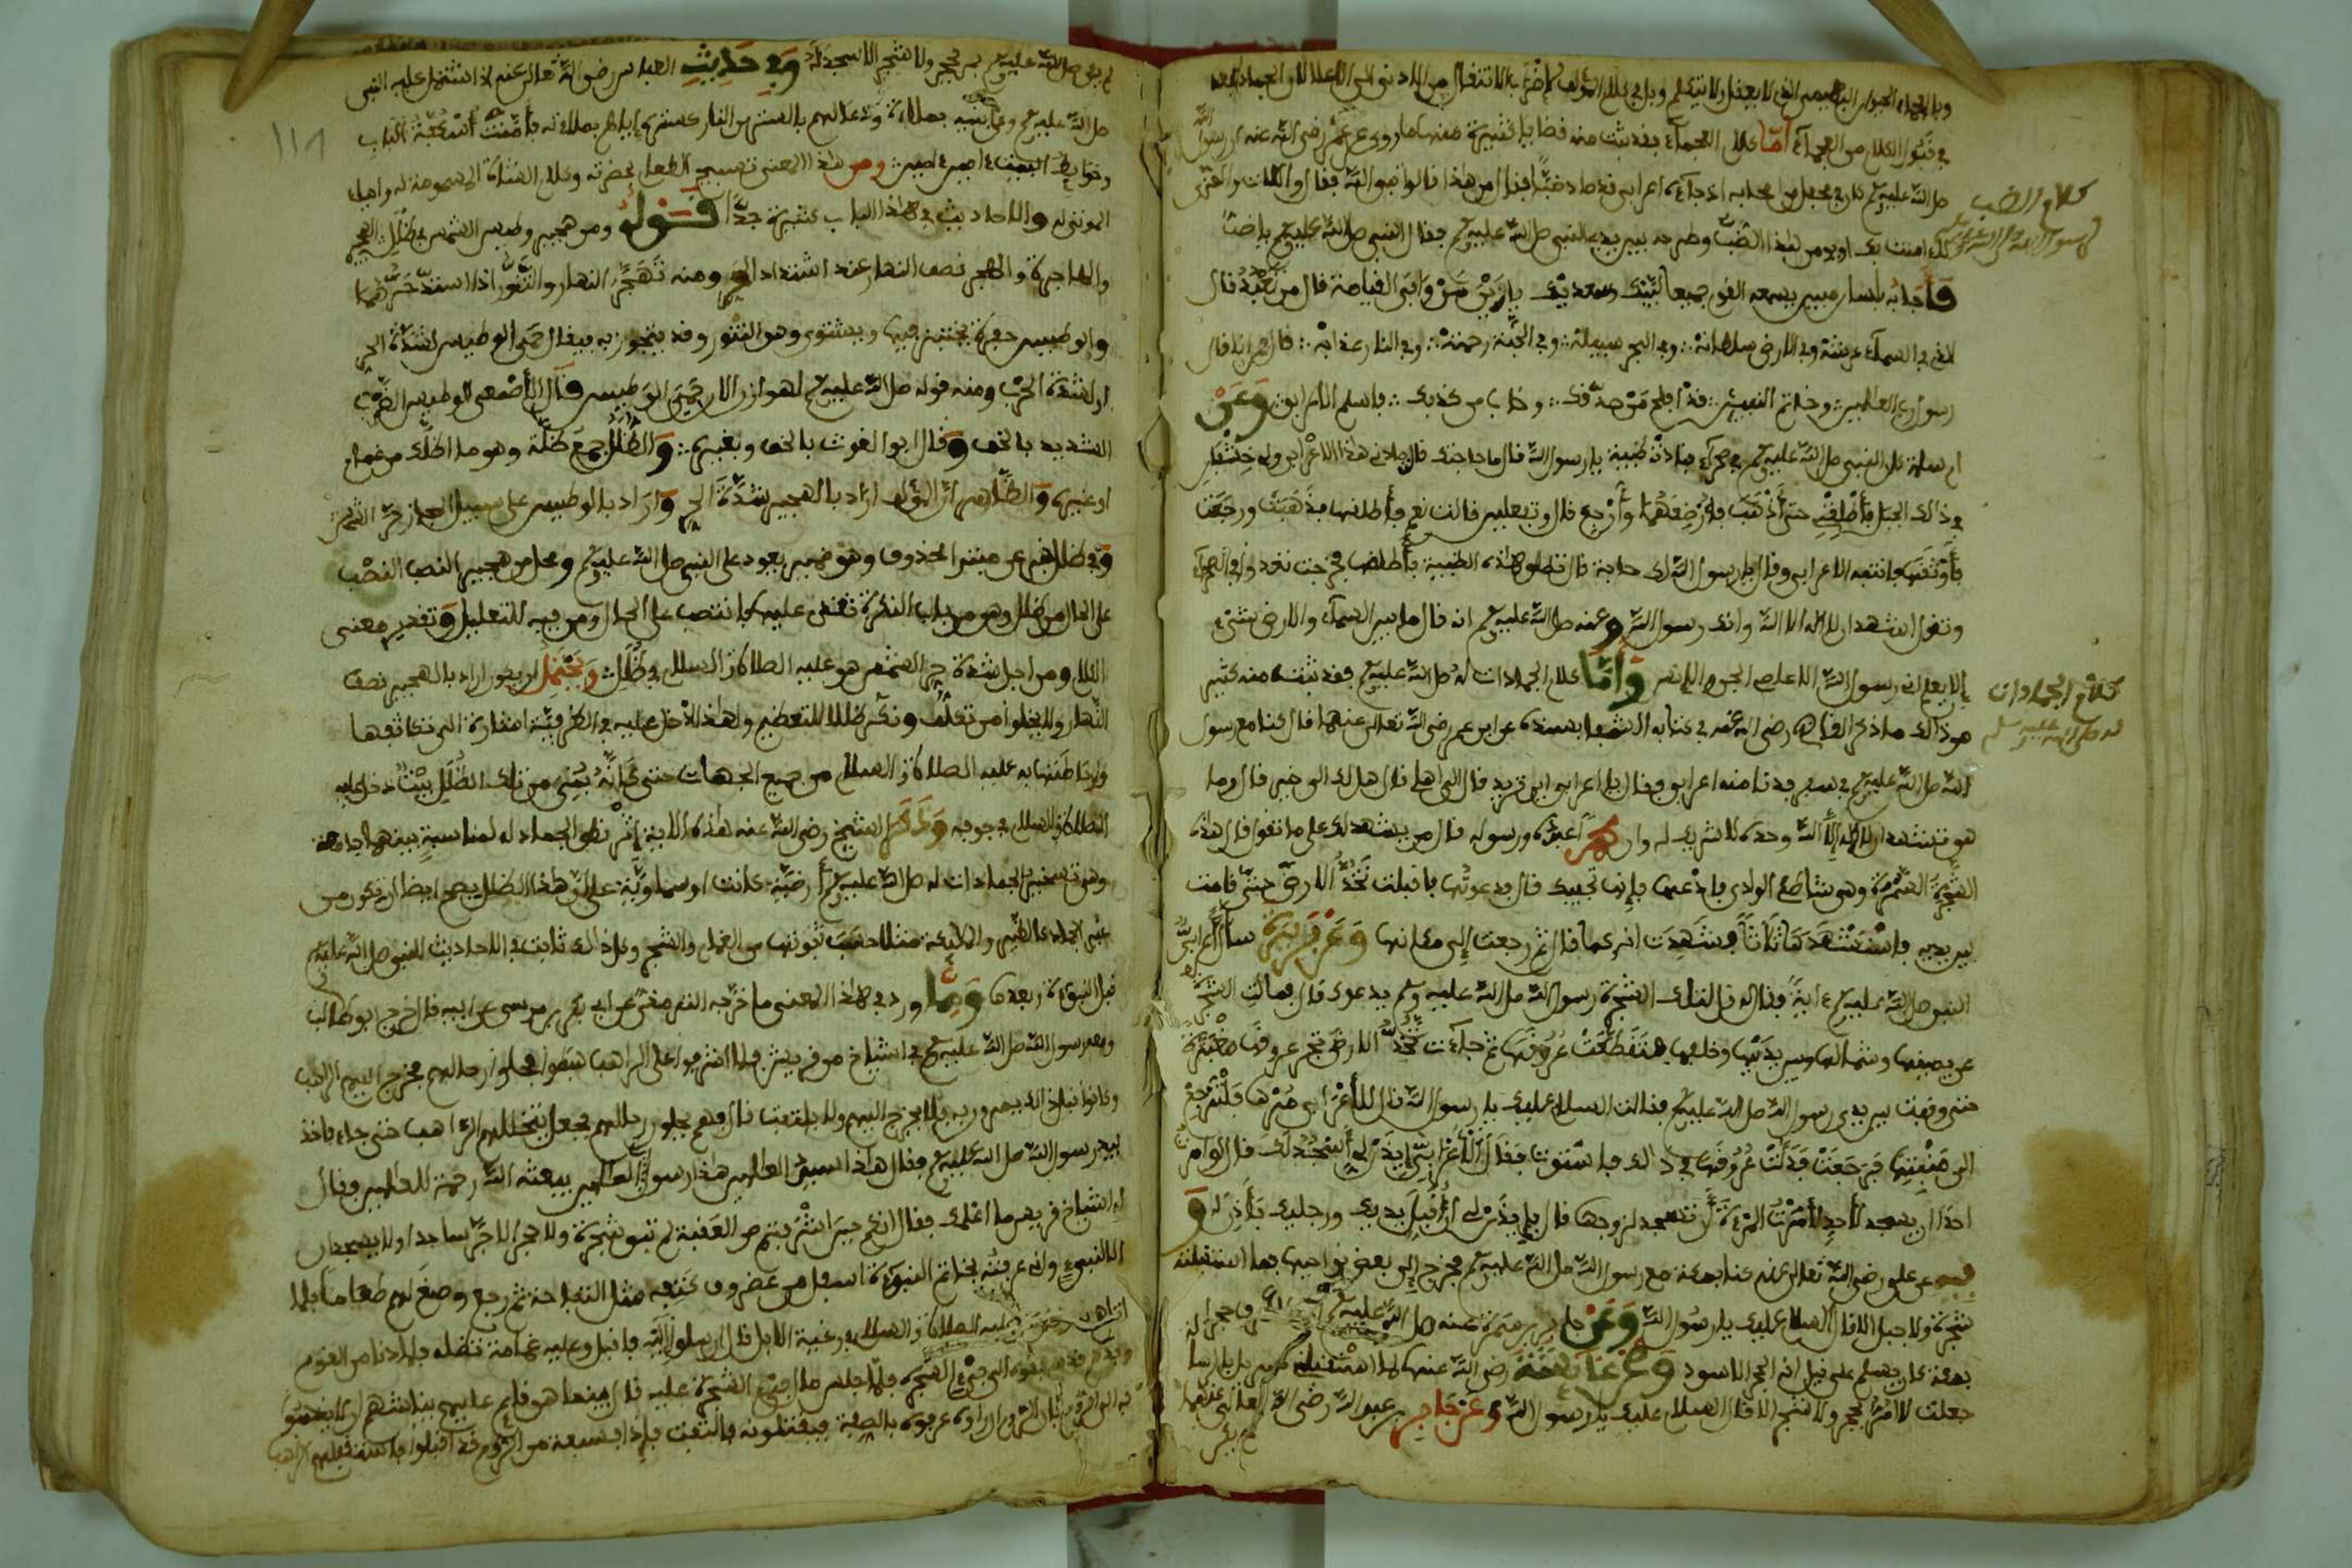 في قبول الكلام من العجماء أما كلام العجماء فقد ثبت منه قضايا كثيرة منها ما روي عن عمر رضي الله عنه أن رسول الله
صلى الله عليه وسلم كان في محفل من أصحابه إذ جاءه أعرابي قد صاد ضبا فقال من هذا قالوا نبي الله فقال واللات والعزى
كلام الضب
لرسول الله صلى الله عليه وسلم
لا ءامنت بك أو يومن هذا الضب وطرحه بين يدي النبي صلى الله عليه وسلم فقال النبي صلى الله عليه وسلم يا ضب
فأجابه بلسان مبين يسمعه القوم جميعا لبيك وسعديك يا زين من وافى القيامة قال من تعبد قال
الذي في السماء عرشه وفي الأرض سلطانه وفي البحر سبيله وفي الجنة رحمته وفي النار عذابه قال فمن أنا قال
رسول رب العالمين وخاتم النبيين قد أفلح من صدقك وخاب من كذبك فأسلم الأعرابي وعن
أم سلمة كان النبي صلى الله عليه وسلم في صحراء فنادته ظبية يا رسول الله قال ما حاجتك قالت صادني هذا الأعرابي ولي خشفان
في ذلك الجبل فأطلقني حتى أذهب فأرضعهما وأرجع قال وتفعلين قالت نعم فأطلقها فذهبت ورجعت
فأوثقها فانتبه الأعرابي وقال يا رسول الله لك حاجة قال تطلق هذه الظبية فأطلقها فخرجت تعدو في الصحراء
وتقول أشهد أن لا إله إلا الله وأنك رسول الله وعنه صلى الله عليه وسلم أنه قال ما بين السماء والأرض شيء
إلا يعلم أني رسول الله إلا عاصي الجن والإنس وأما كلام الجمادات له صلى الله عليه وسلم فقد ثبت منه كثير
كلام الجمادات
له صلى الله عليه وسلم
من ذلك ما ذكر القاضي رضي الله عنه في كتابه الشفا بسنده عن ابن عمر رضي الله تعالى عنهما قال كنا مع رسول
الله صلى الله عليه وسلم في سفر فدنا منه أعرابي فقال يا أعرابي أين تريد قال إلى أهلي قال هل لك إلى خير قال وما
هو تشهد أن لا إله إلا الله وحده لا شريك له وأن محمدا عبده ورسوله قال من يشهد لك على ما تقول قال هذه
الشجرة السمرة وهي بشاطئ الوادي فادعها فإنها تجيبك قال فدعوتها فأقبلت تخد الأرض حتى قامت
بين يديه فاستشهدها ثلاثا فشهدت أنه كما قال ثم رجعت إلى مكانها وعن بريدة سأل أعرابي
النبي صلى الله عليه وسلم ءاية فقال له قل لتلك الشجرة رسول الله صلى الله عليه وسلم يدعوك قال فمالت الشجرة
عن يمينها وشمالها وبين يديها وخلفها فتقطعت عروقها ثم جاءت تخد الأرض تجر عروقها مغبرة
حتى وقفت بين يدي رسول الله صلى الله عليه وسلم فقالت السلام عليك يا رسول الله قال الأعرابي مرها فلترجع
إلى منبتها فرجعت فدلت عروقها في ذلك فاستوت فقال الأعرابي إيذن لي أسجد لك قال لو أمرت
أحدا أن يسجد لأحد لأمرت المرأة أن تسجد لزوجها قال فإيذن لي أن أقبل يديك ورجليك فأذن له و
عن علي رضي الله تعالى عنه كنا بمكة مع رسول الله صلى الله عليه وسلم فخرج إلى بعض نواحيها فما استقبله
شجرة ولا جبل إلا قال السلام عليك يا رسول الله وعن جابر بن سمرة عنه صلى الله عليه وسلم إني لأعرف حجرا
بمكة كان يسلم علي قيل إنه الحجر الأسود وعن عائشة رضي الله عنها لما استقبلني جبريل بالرسالة
جعلت لا أمر بحجر ولا شجر إلا قال السلام عليك يا رسول الله وعن جابر بن عبد الله رضي الله تعالى عنهما
لم يكن
١١٨
صلى الله عليه وسلم يمر بحجر ولا شجر إلا سجد له وفي حديث العباس رضي الله تعالى عنه إذ اشتمل عليه النبي
صلى الله عليه وسلم وعلى بنيه بملاءة ودعا لهم بالستر من النار كستره إياهم بملاءته فأمنت أسكفة الباب
وحوائط البيت ءامين ءامين ومن هذا المعنى تسبيح الطعام بحضرته وكلام الشاة المسمومة له
والأحاديث في هذا الباب كثيرة جدا قوله ومن هجير وطيس الشمس في ظلل الهجير
والهاجرة والهجر نصف النهار عند اشتداد الحر ومنه تهجر النهار
والوطيس حفرة يختبز فيها ويشتوى وهو التنور وقد يتجوز به فيقال حمي الوطيس لشدة الحر
أو لشدة الحرب ومنه قوله صلى الله عليه وسلم لهوازن الآن حمي الوطيس قال الأصمعي الوطيس الضرب
الشديد بالخف وقال أبو الغوث بالخف وبغيره والظلل جمع ظلة وهو ما أظلك من غمام
أو غيره والظاهر أن المؤلف أراد بالهجير شدة الحر وأراد بالوطيس على سبيل المجاز حر الشمس
وفي ظلل خبر عن مبتدإ محذوف وهو ضمير يعود على النبي صلى الله عليه وسلم ومحل من هجير النصب
على الحال من ظلل وهو من باب النكرة تقدم عليها فانتصب على الحال ومن فيه للتعليل وتقدير معنى
الكلام ومن أجل شدة حر الشمس هو عليه الصلاة والسلام في ظلل ويحتمل أن يكون أراد بالهجير نصف
النهار ولا يخلو من تكلف ونكر ظللا للتعظيم
عليه الصلاة والسلام من جميع الجهات حتى كأنه بني من تلك الظلل بيت دخل عليه
الصلاة والسلام في جوفه وذكر الشيخ رضي الله عنه هذه الآية إثر نطق الجماد له لمناسبة بينهما جامعة
وهو تسخير الجمادات له صلى الله عليه وسلم أرضية كانت أو سماوية على أن هذا الظلل يصح أيضا أن يكون من
غير الجماد كالطير والملائكة مثلا
قبل النبوة وبعدها ومما ورد في هذا المعنى ما خرجه الترمذي عن أبي بكر بن موسى عن أبيه قال خرج أبو طالب
ومعه رسول الله صلى الله عليه وسلم في أشياخ من قريش فلما أشرفوا على الراهب هبطوا فحلوا رحالهم فخرج إليهم الراهب
وكانوا قبل ذلك يمرون به فلا يخرج إليهم ولا يلتفت قال فهم يحلون رحالهم فجعل يتخللهم الراهب حتى جاء فأخذ
بيد رسول الله صلى الله عليه وسلم فقال هذا سيد العالمين هذا رسول رب العالمين يبعثه الله رحمة للعالمين فقال
له أشياخ قريش ما علمك فقال إنكم حين أشرفتم من العقبة لم تبق شجرة ولا حجر إلا خر ساجدا ولا يسجدان
إلا لنبي وإني عرفته بخاتم النبوءة أسفل من غضروف كتفه مثل التفاحة ثم رجع وصنع لهم طعاما فلما
عليه الصلاة والسلام في رعية الإبل قال أرسلوا إليه فأقبل وعليه غمامة تظله فلما دنا من القوم
إلى فيء الشجرة فلما جلس مال فيء الشجرة عليه قال فبينما هو قائم عليهم يناشدهم أن لا يذهبوا
به إلى الروم عرفوه بالصفة فيقتلونه فالتفت فإذا بسبعة من الروم قد أقبلوا فاستقبلهم الراهب